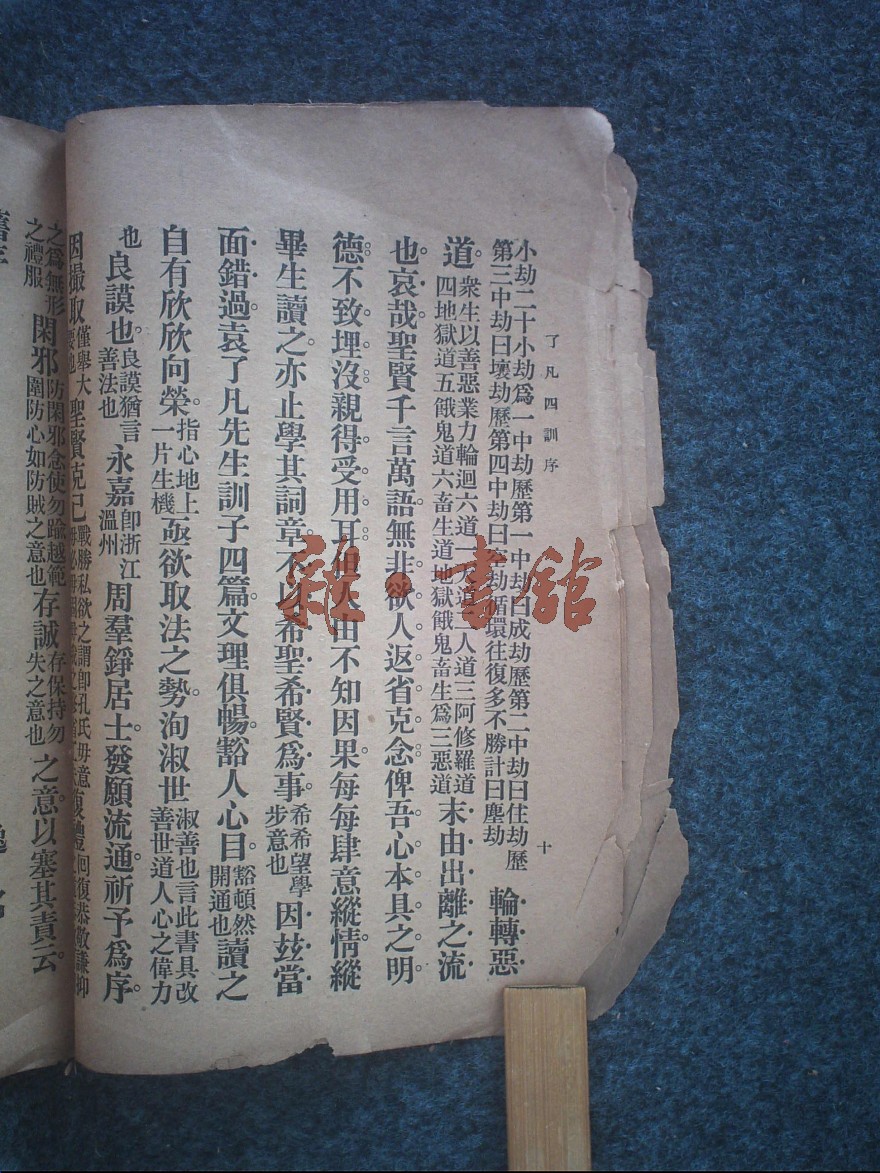 了凡四訓序 十
小劫二十小劫爲一中劫歷第一中劫曰成劫歷第二中劫曰住劫歷
第三中劫曰壞劫歷第四中劫曰空劫循環往復多不勝計曰塵劫
輪轉惡
道。衆生以善惡業力輪迴六道一天道二人道三阿修羅道
四地獄道五餓鬼道六畜生道地獄餓鬼畜生爲三惡道
末由出離之流
也。哀哉聖賢千言萬語無非欲人返省克念俾吾心本具之明
德不致埋沒親得受用耳但人由不知因果每每肆意縱情縱
畢生讀之亦止學其詞章不以希聖希賢爲事
希希望學
步意也
因玆當
面錯過袁了凡先生訓子四篇文理俱暢豁人心目
豁頓然
開通也
讀之
自有欣欣向榮
指心地上
一片生機
亟欲取法之勢洵淑世
淑善也言此書具改
善世道人心之偉力
也
良謨也
良謨猶言
善法也
永嘉
卽浙江
溫州
周羣錚居士發願流通祈予爲序
因撮取
僅舉大
要也
聖賢克己
戰勝私欲之謂卽孔氏毋意
復禮
回復恭敬謙抑
之爲無形
之禮服
閑邪
防閑邪念使勿踰越範
圍防心如防賊之意也
存誠
存保持勿
失之意也
之意以塞其責云
雜·書館